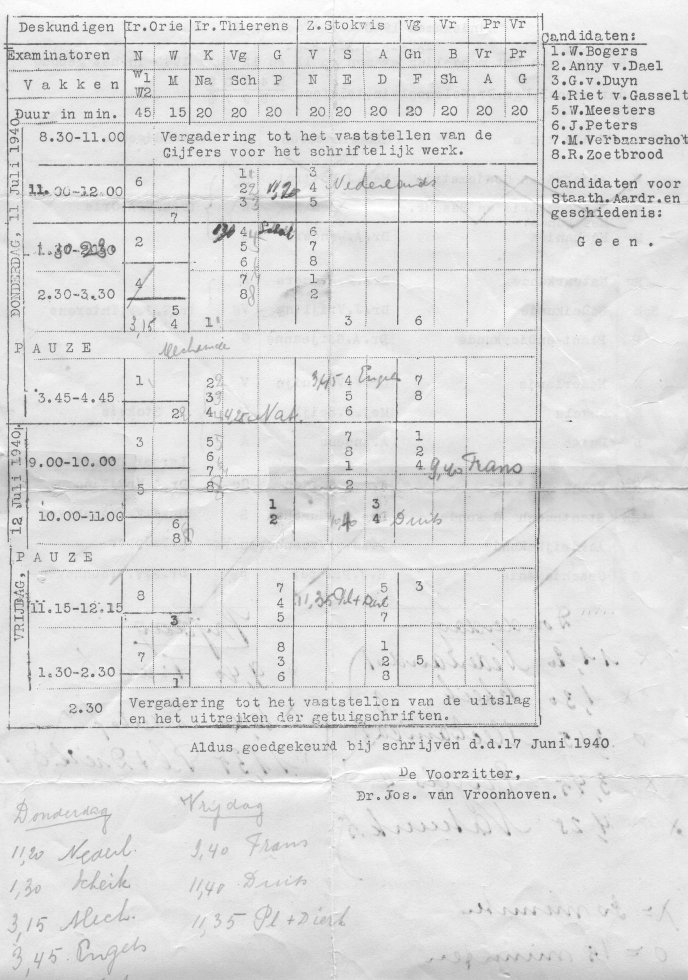 Deskundigen Ir.Orie Ir.Thierens Z.Stokvis Vg Vr Pr Vr
Examinatoren N W K Vg G V S A Gn B Vr Pr
Vakken W1 W2 M Na Sch P N E D F Sh A G
Duur in min. 45 15 20 20 20 20 20 20 20 20 20 20
DONDERDAG, 11 Juli 1940
8.30-11.00 Vergadering tot het vaststellen van de
Cijfers voor het schriftelijk werk.
1 3
11.00-12.00 6 2 11,20 4 Nederlands
3 5
7
1,30 4 Scheik 6
1.30-2.30 2 5 7
6 8
4 7 1
2.30-3.30 8 2
5
3,15 4 1 3 6
PAUZE Mechanica
1 2 3,45 4 Engels 7
3.45-4.45 3 5 8
2 4 4,25 Nat. 6
VRIJDAG, 12 Juli 1940
3 5 7 1
9.00-10.00 6 8 2
7 1 4 9,40 Frans
5 8 2
1 3
10.00-11.00 6 2 4 Duits
8
PAUZE
7 5 3
11.15-12.15 8 4 11,35 Pl+Dierk
3 5 7
8 1
1.30-2.30 7 3 2 5
1 6 8
2.30 Vergadering tot het vaststellen van de uitslag
en het uitreiken der getuigschriften.
Candidaten:
1.W.Bogers
2.Anny v.Dael
3.G.v.Duyn
4.Riet v.Gasselt
5.W.Meesters
6.J.Peters
7.M.Verbaarschot
8.R.Zoetbrood
Candidaten voor
Staath.Aardr.en
geschiedenis:
Geen.
Aldus goedgekeurd bij schrijven d.d.17 Juni 1940
De Voorzitter,
Dr.Jos. van Vroonhoven.
Donderdag Vrijdag
11,20 Nederl. 9,40 Frans
1,30 Scheik 11,40 Duits
3,15 Mech. 11,35 Pl + Dierk
3,45 Engels